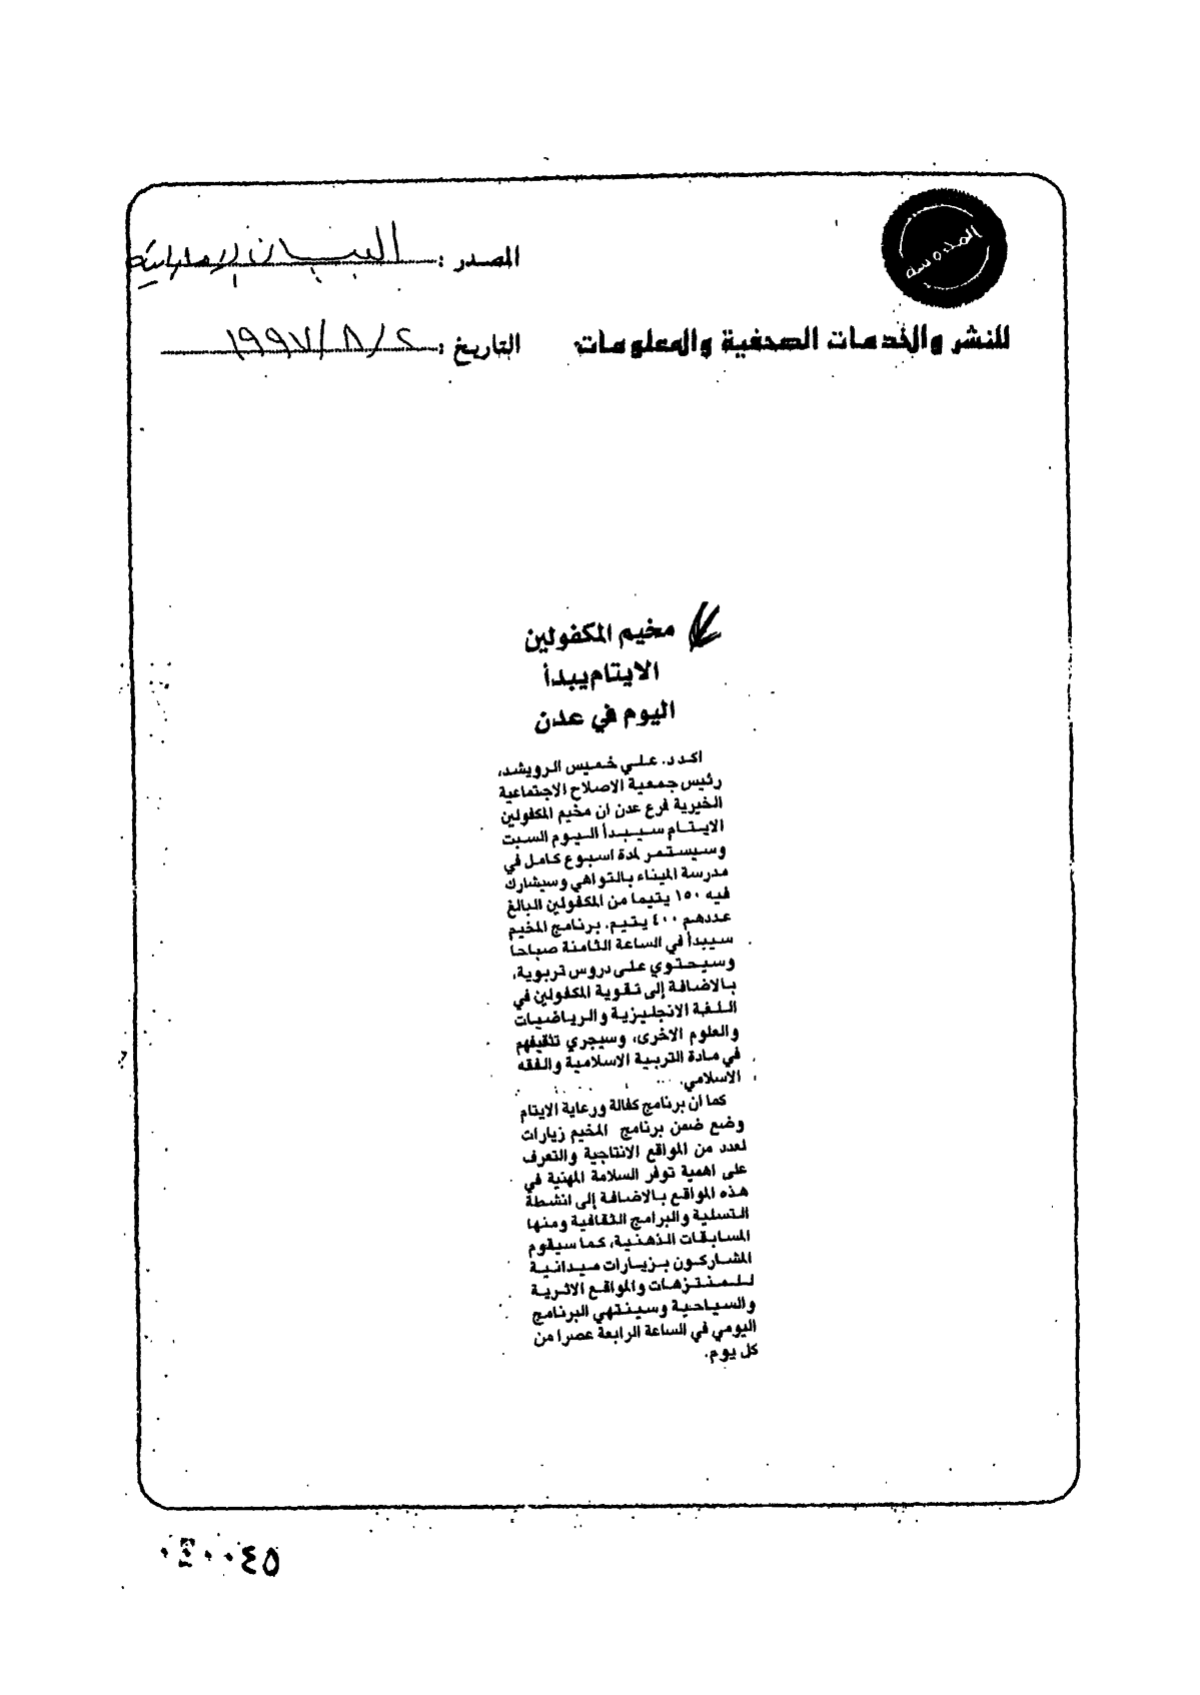 المصدر : البيان الإماراتية
للنشر والخدمات الصحفية والمعلومات
التاريخ : ٢ / ٨ / ١٩٩٧
مخيم المكفولين
الايتام يبدأ
اليوم في عدن
اكد د. علي خميس الرويشد،
رئيس جمعية الاصلاح الاجتماعية
الخيرية فرع عدن ان مخيم المكفولين
الايتام سيبدأ اليوم السبت
وسيستمر لمدة اسبوع كامل في
مدرسة الميناء بالتواهي وسيشارك
فيه ١٥٠ يتيما من المكفولين البالغ
عددهم ٤٠٠ يتيم. برنامج المخيم
سيبدأ في الساعة الثامنة صباحا
وسيحتوي على دروس تربوية،
بالاضافة إلى تقوية المكفولين في
اللغة الانجليزية والرياضيات
والعلوم الاخرى، وسيجري تثقيفهم
في مادة التربية الاسلامية والفقه
الاسلامي.
كما ان برنامج كفالة ورعاية الايتام
وضع ضمن برنامج المخيم زيارات
لعدد من المواقع الانتاجية والتعرف
على اهمية توفر السلامة المهنية في
هذه المواقع بالاضافة إلى انشطة
التسلية والبرامج الثقافية ومنها
المسابقات الذهنية، كما سيقوم
المشاركون بزيارات ميدانية
للمنتزهات والمواقع الاثرية
والسياحية وسينتهي البرنامج
اليومي في الساعة الرابعة عصرا من
كل يوم.